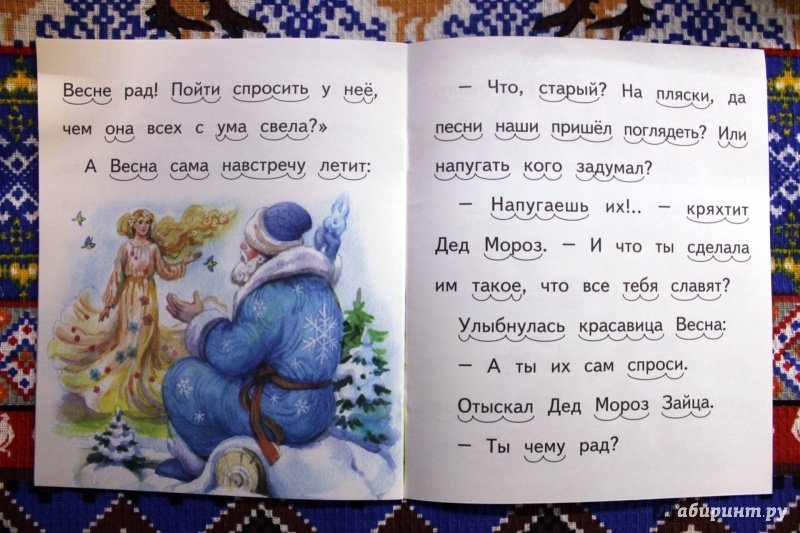 Весне рад! Пойти спросить у неё,
чем она всех с ума свела?»
А Весна сама навстречу летит:
— Что, старый? На пляски, да
песни наши пришёл поглядеть? Или
напугать кого задумал?
— Напугаешь их!.. — кряхтит
Дед Мороз. — И что ты сделала
им такое, что все тебя славят?
Улыбнулась красавица Весна:
— А ты их сам спроси.
Отыскал Дед Мороз Зайца.
— Ты чему рад?
абиринт.ру